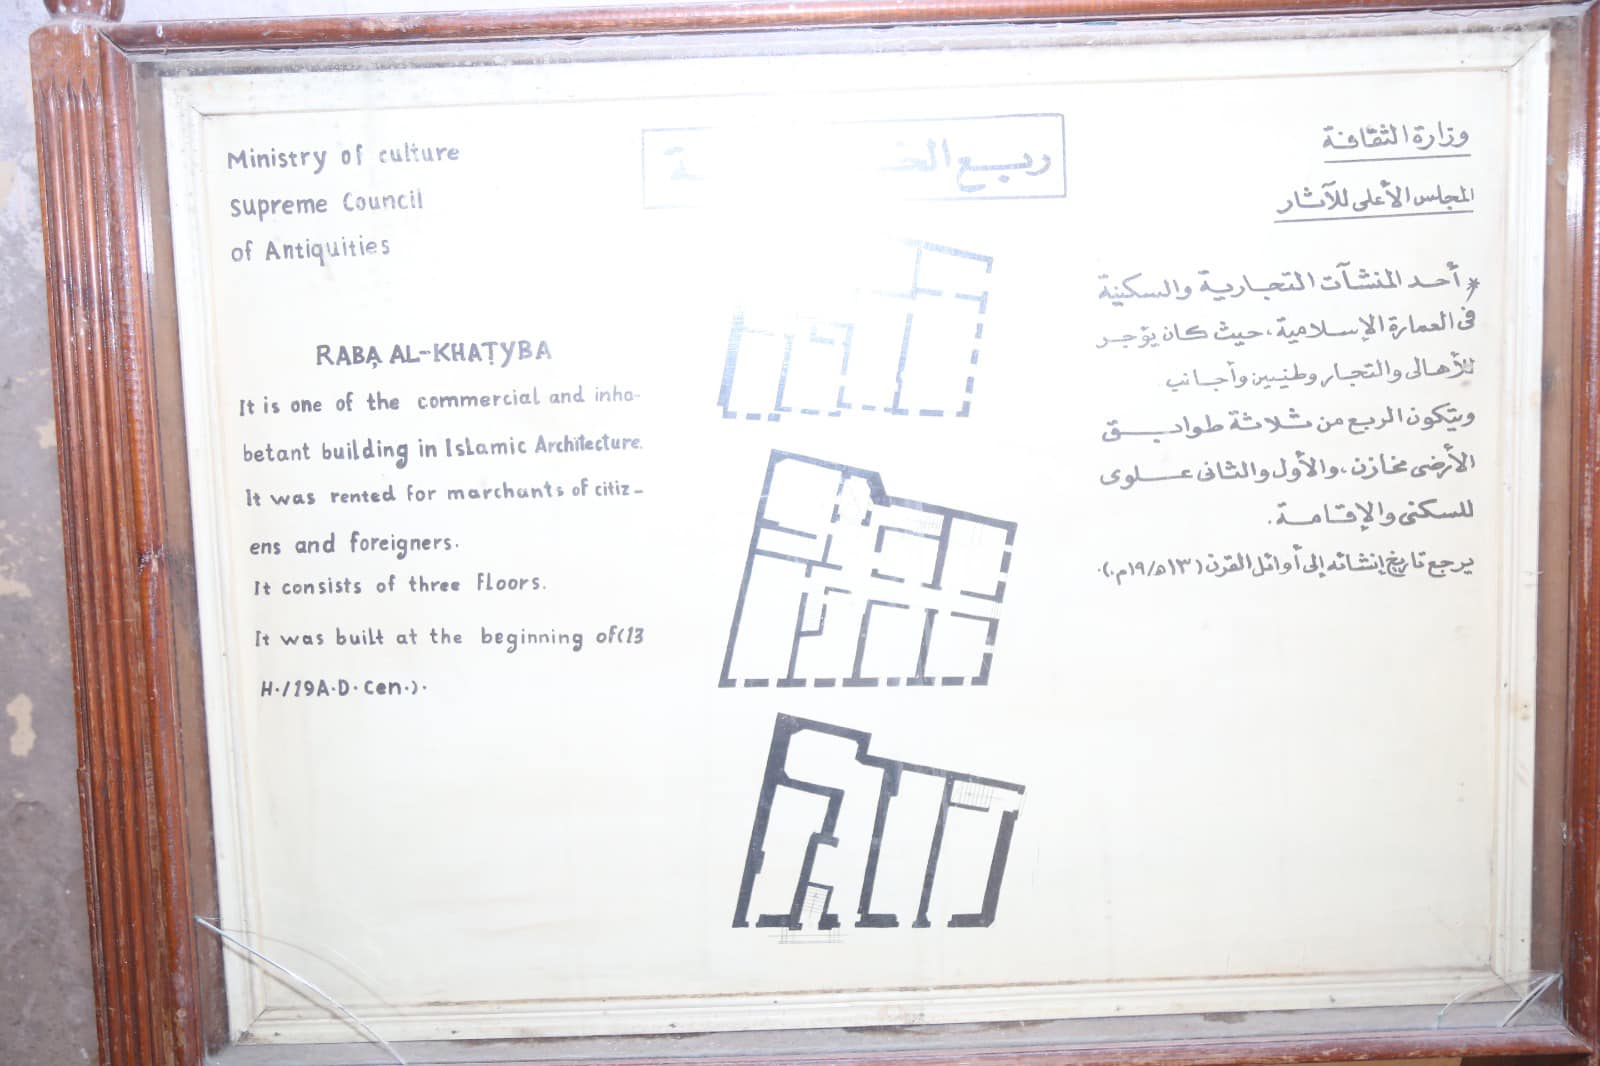 Ministry of culture
supreme Council
of Antiquities
RABA AL-KHAṬYBA
It is one of the commercial and inha-
betant building in Islamic Architecture.
It was rented for marchants of citiz-
ens and foreigners.
It consists of three floors.
It was built at the beginning of(13
H./19A.D. Cen.).
ربع
وزارة الثقافة
المجلس الأعلى للآثار
* أحد المنشآت التجارية والسكنية
فى العمارة الإسلامية، حيث كان يؤجر
للأهالى والتجار وطنيين وأجانب
ويتكون الربع من ثلاثة طوابق
الأرضى مخازن، والأول والثانى علوى
للسكنى والإقامة.
يرجع تاريخ إنشائه إلى أوائل القرن (١٣هـ/١٩م.).